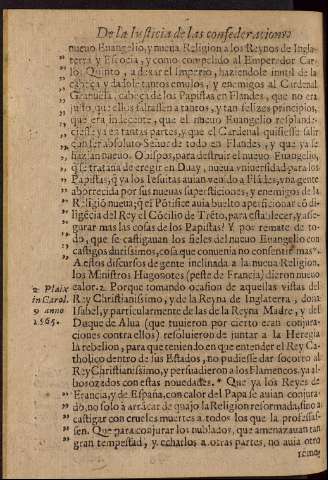 De la Iusticia de las confederaciones
nueuo Euangelio, y nueua Religion a los Reynos de Ingla-
terra y Escocia, y como compelido al Emperador Car-
lo Quinto, a dexar el Imperio, haziendole inutil de la
cabeça y dadole tantos emulos, y enemigos al Cardenal
Granuela, cabeça de los Papistas en Flandes, que no era
justo, que ellos faltassen a tantos, y tan felizes principios,
que era indecente, que el nueuo Euangelio resplande-
ciesse ya en tantas partes, y que el Cardenal quisiesse salir
con ser absoluto Señor de todo en Flandes, y que ya se
hazian nueuo. Obispos, para destruir el nueuo Euangelio,
q̃ se trataua de eregir en Duay, nueua vniuersidad para los
Papistas, q̃ ya los Iesuitas auian venido a Flãdes, vna gente
aborrecida por sus nueuas supersticiones, y enemigos de la
Religiõ nueua; q̃ el Põtifice auia buelto a perficionar cõ di-
ligẽcia del Rey el Cõcilio de Trẽto, para establecer, y ase-
gurar mas las cosas de los Papistas? Y por remate de to-
do, que se castigauan los fieles del nueuo Euangelio con
castigos durissimos, cosa que conuenia no consentir mas.
A estos discursos de gente inclinada a la nueua Religion,
los Ministros Hugonotes (peste de Francia) dieron nueuo
calor. 2 Porque tomando ocasion de aquellas vistas del
Rey Christianissimo, y de la Reyna de Inglaterra, dona
Isabel, y particularmente de las de la Reyna Madre, y del
Duque de Alua (que tuuieron por cierto eran conjura-
ciones contra ellos) resoluieron de juntar a la Heregia
la rebelion, para que teniendo en que entender el Rey Ca-
tholico dentro de sus Estados, no pudiesse dar socorro al
Rey Christianissimo, y persuadieron a los Flamencos, ya al-
borozados con estas nouedades. * Que ya los Reyes de
Francia, y de España, con calor del Papa se auian conjura-
do, no solo à arrãcar de quajo la Religion reformada, sino a
castigar con crueles muertes a todos los que la professas-
sen. Que para conjurar los nublados, que amenazauan tan
gran tempestad, y echarlos a otras partes, no auia otro
reme-
2 Plaix
in Carol.
9 anno
1565.